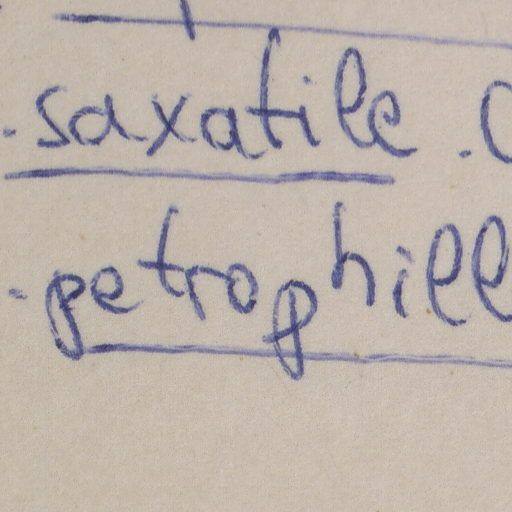 . saxatile .
. petrophill